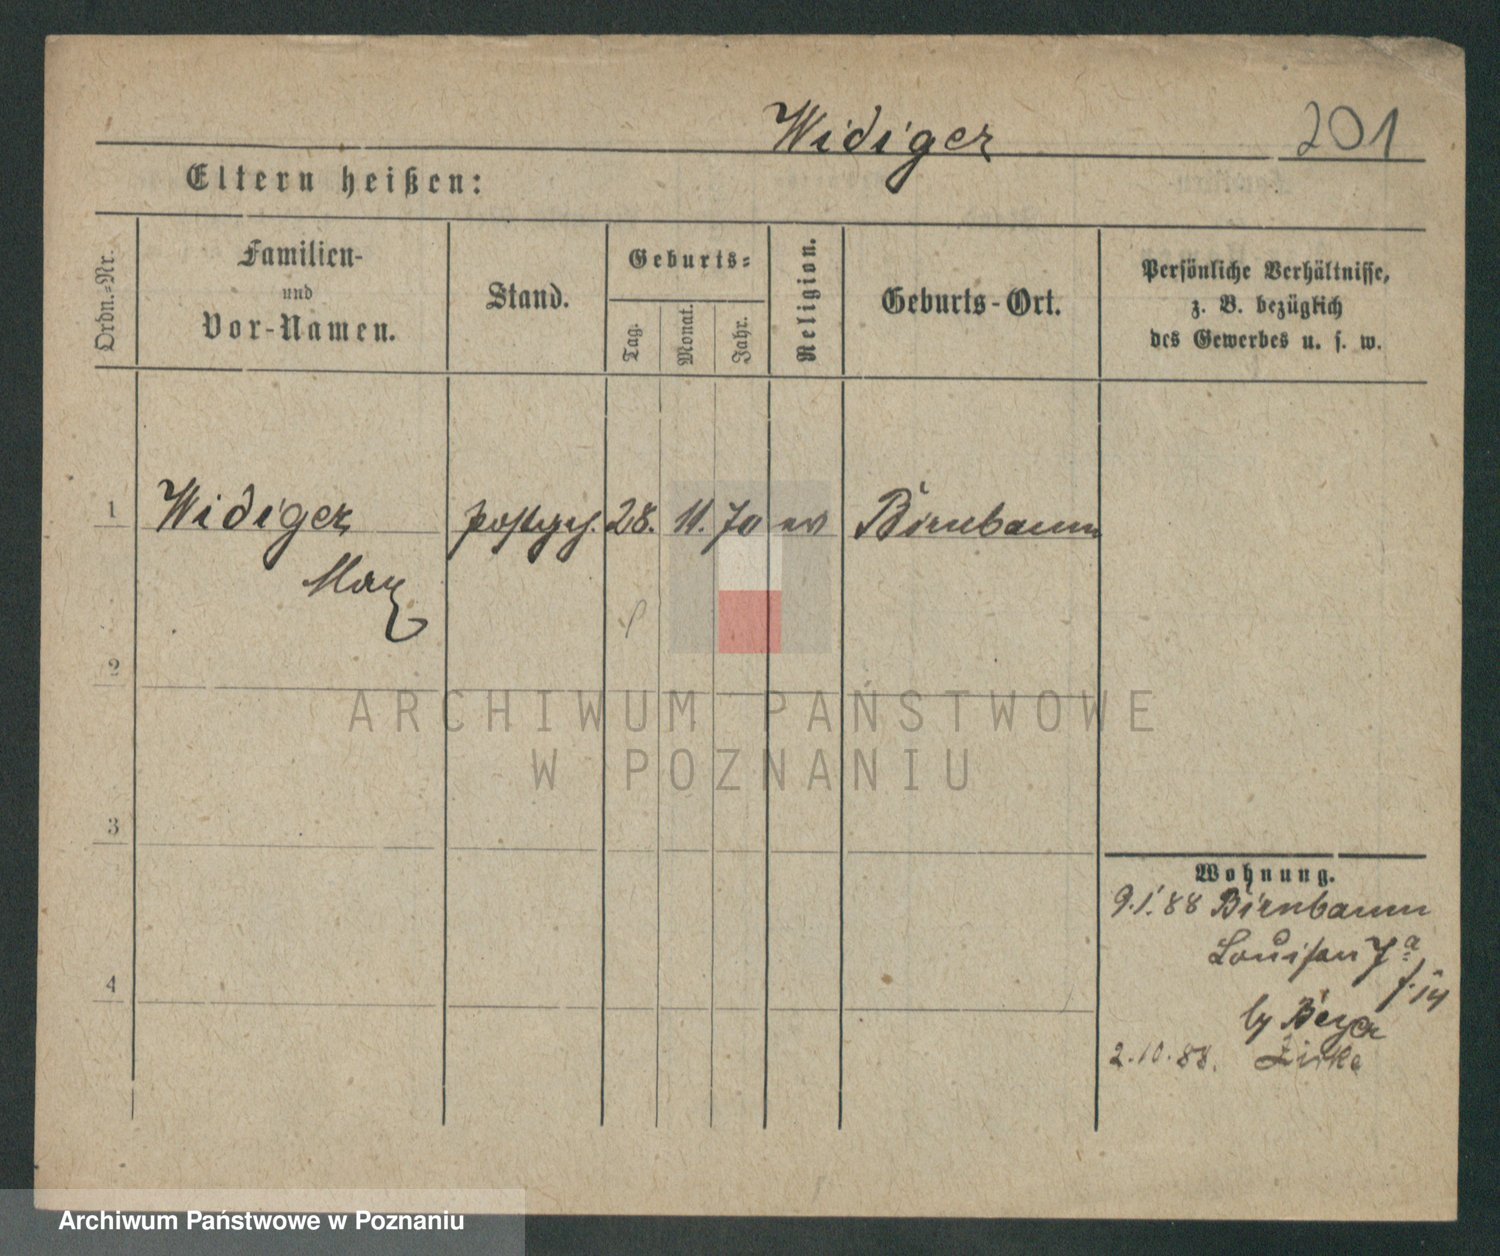 Widiger 201
Eltern heißen:
Ordn.-Nr.
Familien-
und
Vor-Namen.
Stand.
Geburts-
Tag.
Monat.
Jahr.
Religion.
Geburts-Ort.
Persönliche Verhältnisse,
z. B. bezüglich
des Gewerbes u. s. w.
1 Widiger 28. 11. 70 ev Birnbaum
Max
2
3
4
Wohnung.
9.1.88 Birnbaum
Louisen
by Beyer
2.10.88. Zirke
ARCHIWUM PAŃSTWOWE
W POZNANIU
Archiwum Państwowe w Poznaniu